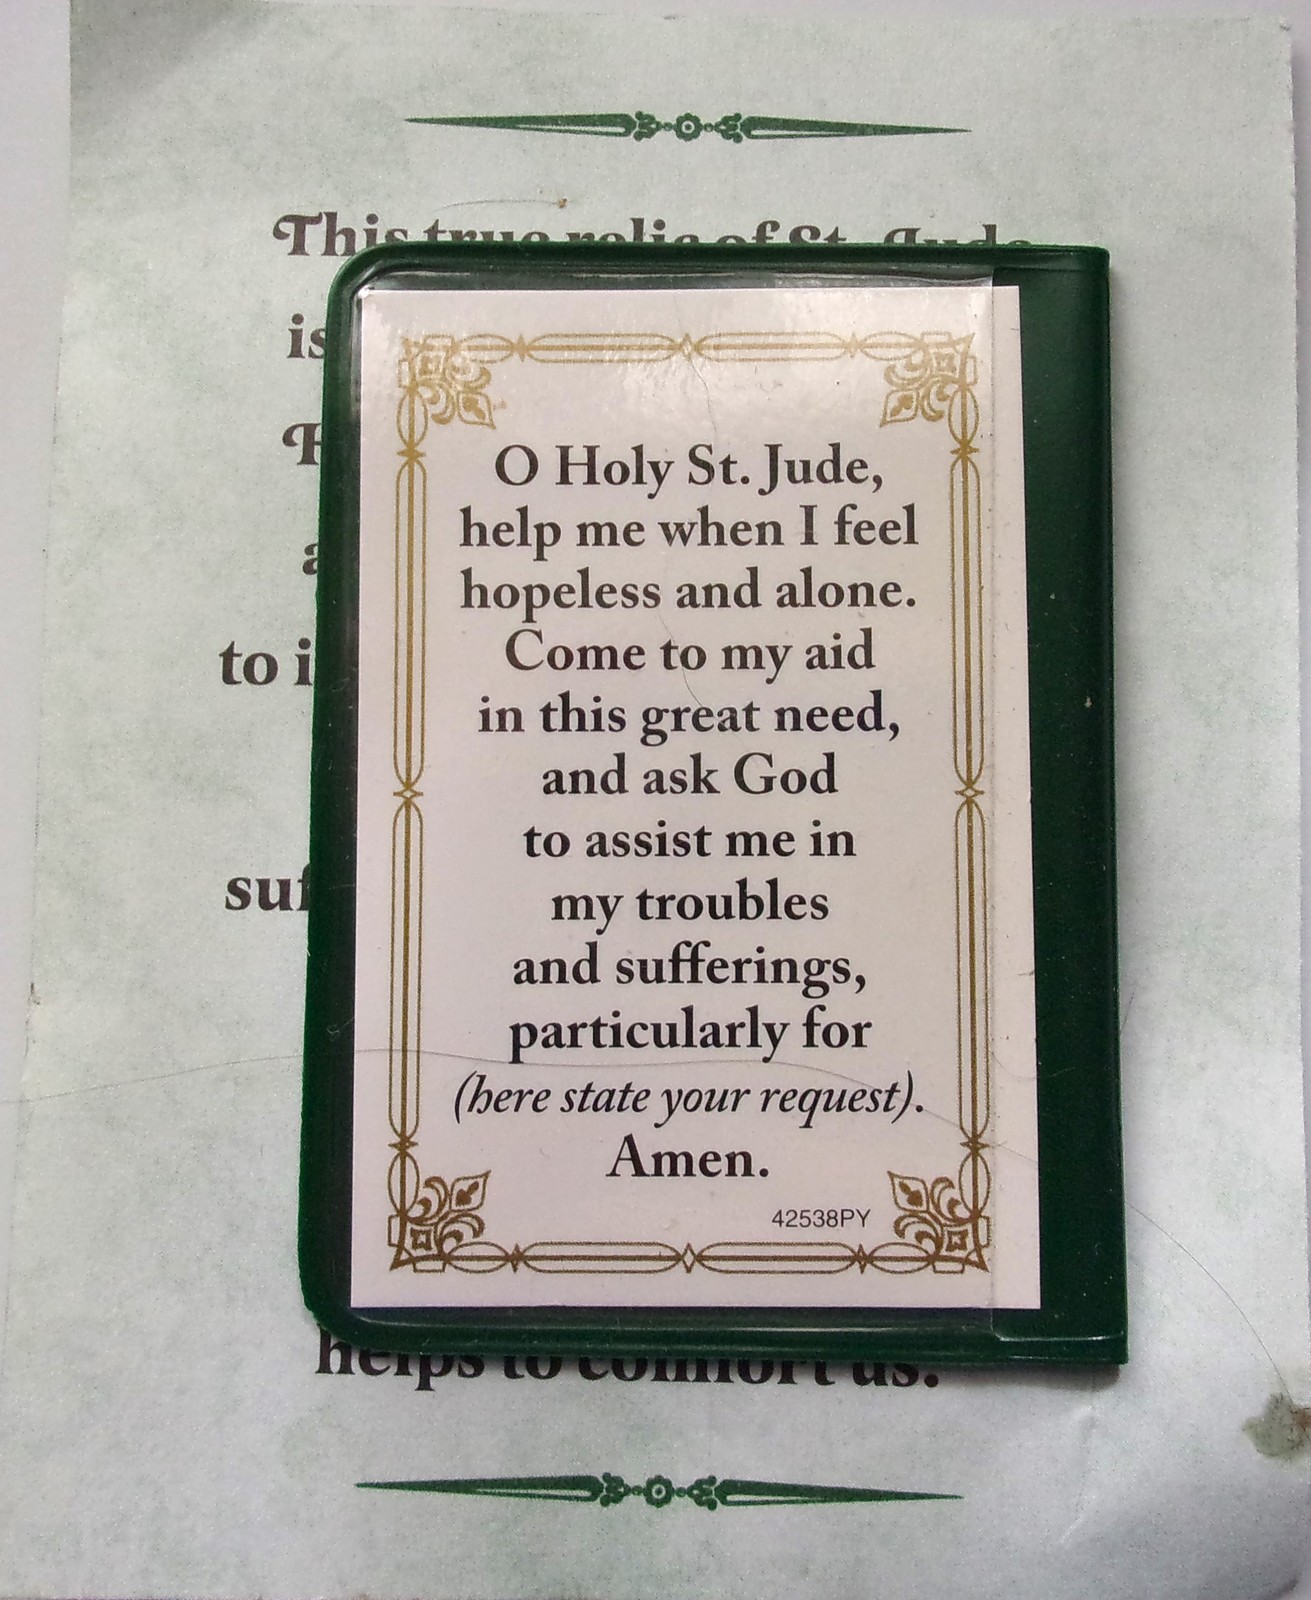 This true relic of St. Jude
is
to i
O Holy St. Jude,
help me when I feel
hopeless and alone.
Come to my aid
in this great need,
and ask God
to assist me in
my troubles
and sufferings,
particularly for
(here state your request).
Amen.
42538PY
helps to comfort us.